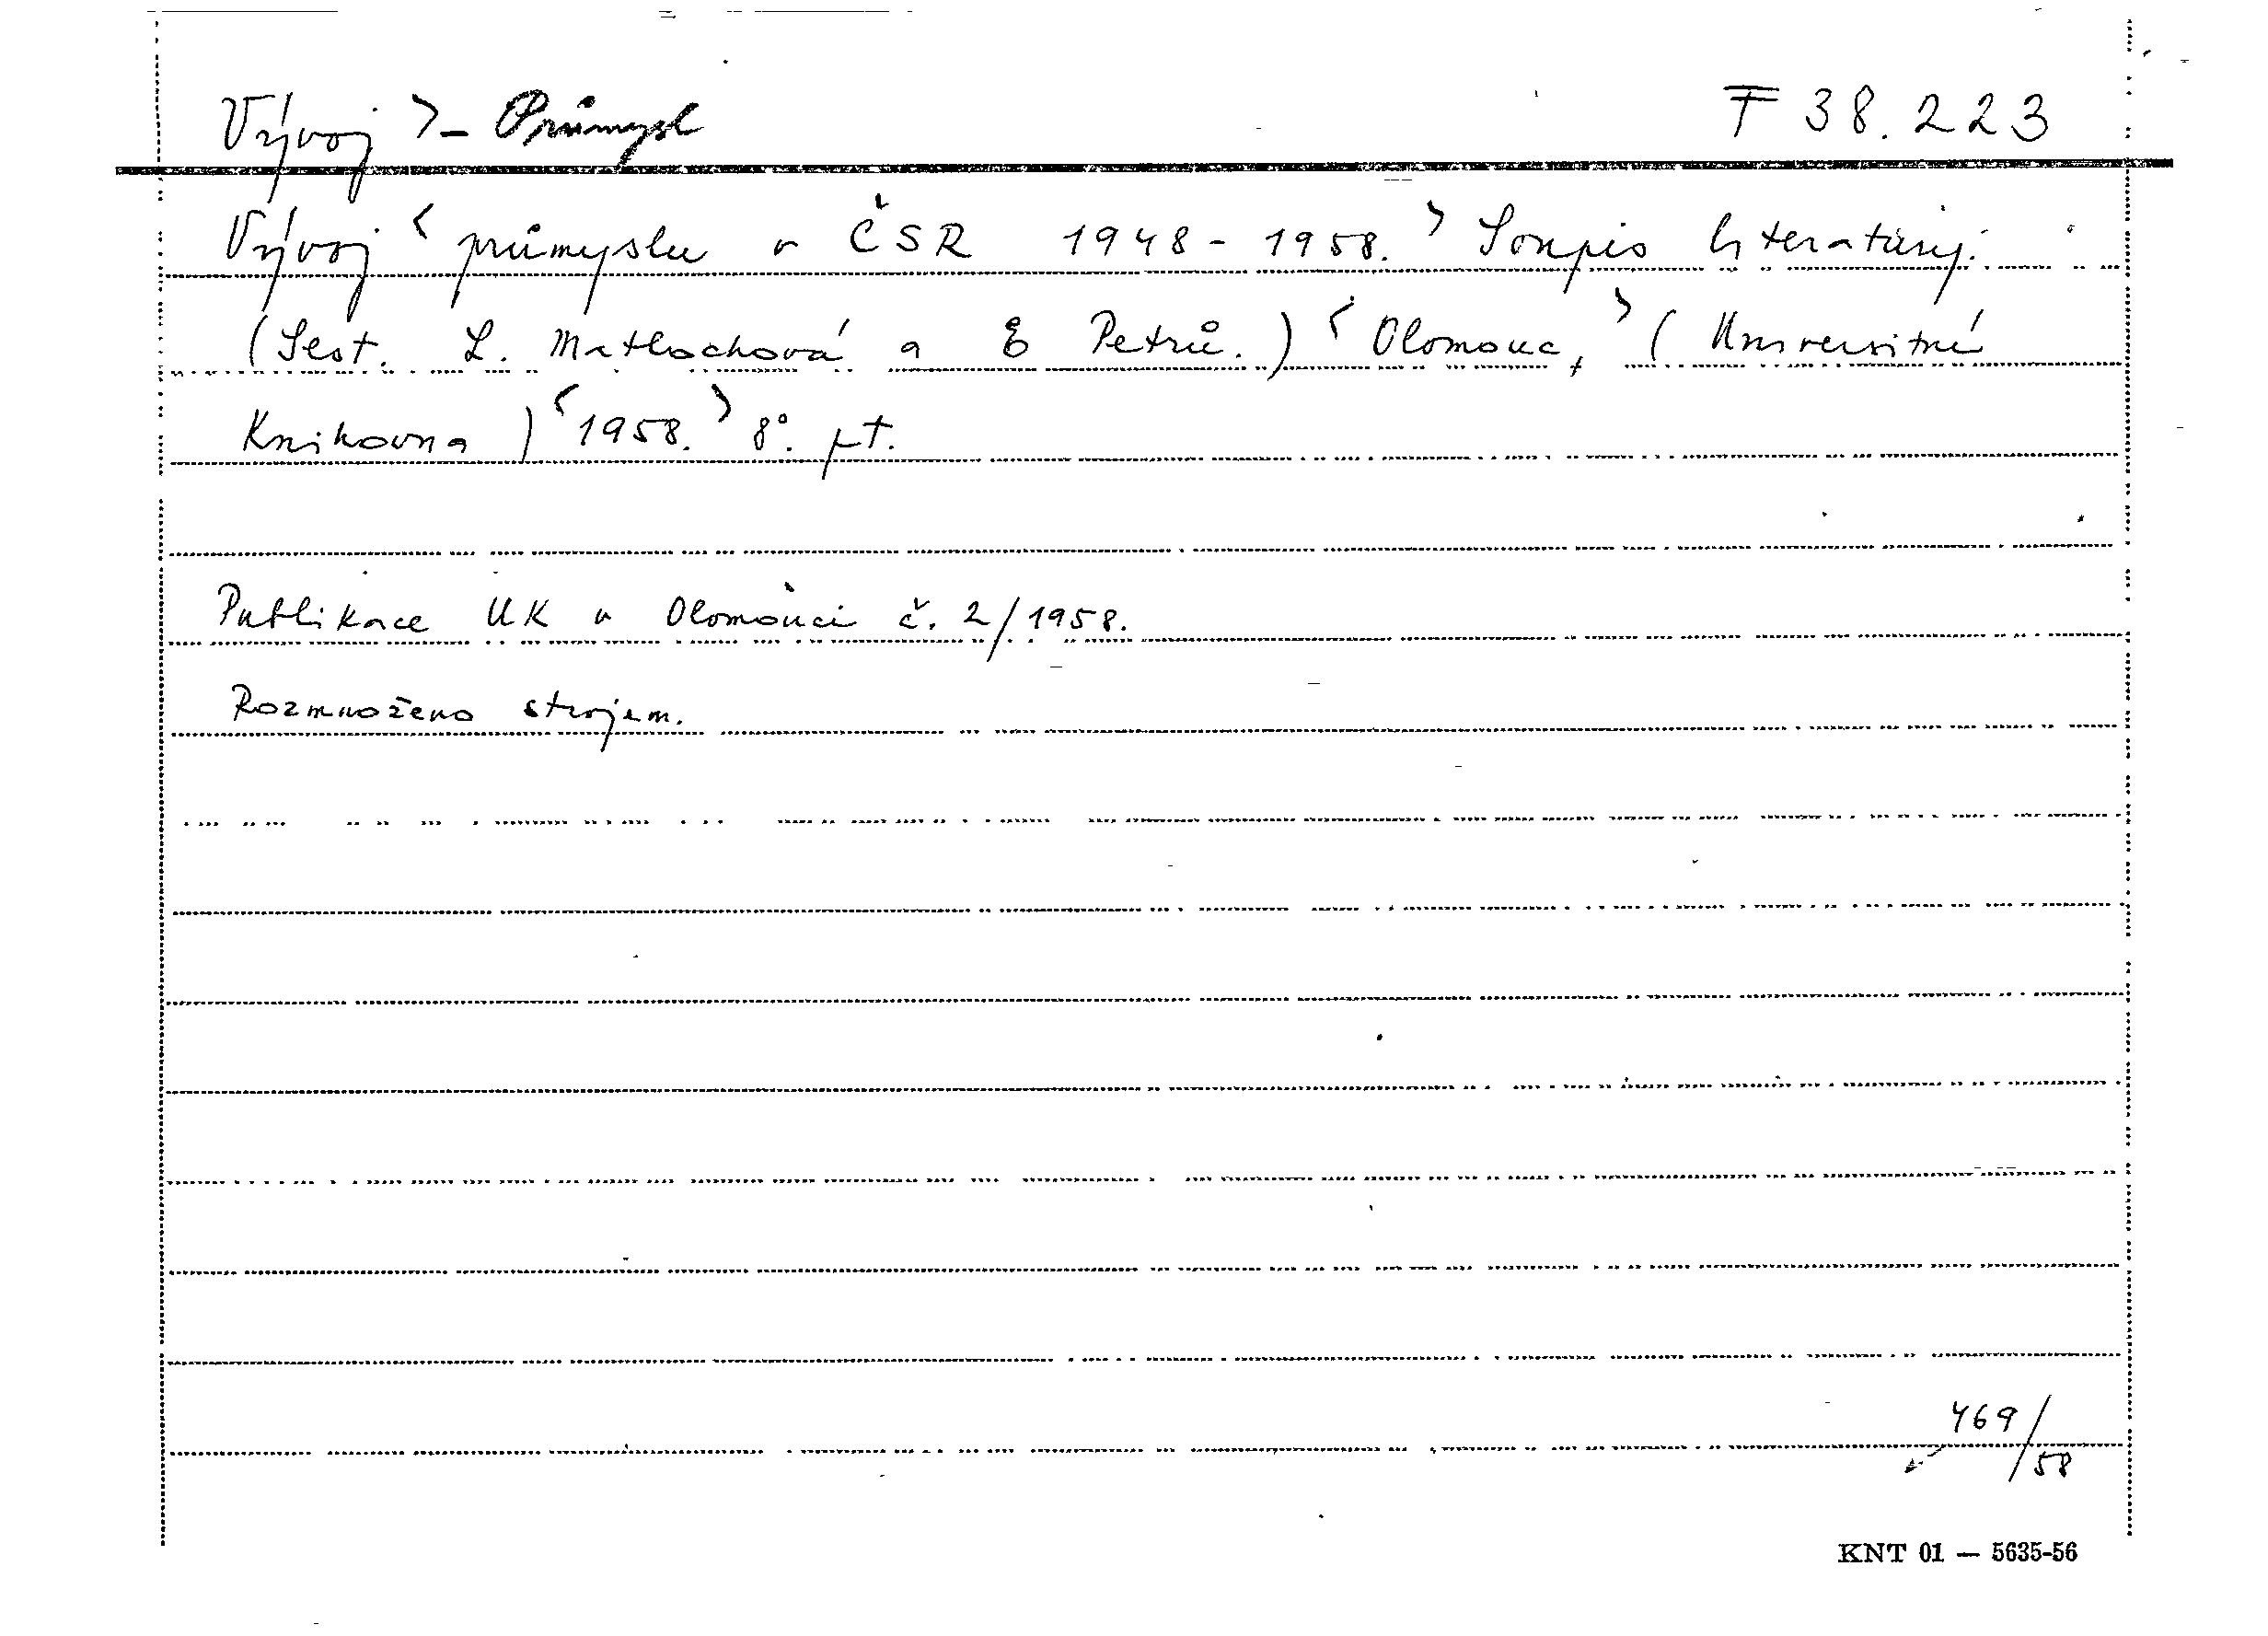 Vývoj >- Průmysl F 38.223
Vývoj < průmyslu v ČSR 1948-1958. > Soupis literatury.
(Sest. L. Matlochová a E Petrů.) < Olomouc, > (Universitní
Knihovna) < 1958. > 8°. pt.
Publikace UK v Olomouci č. 2/1958.
Rozmnoženo strojem.
469/58
KNT 01 — 5635-56